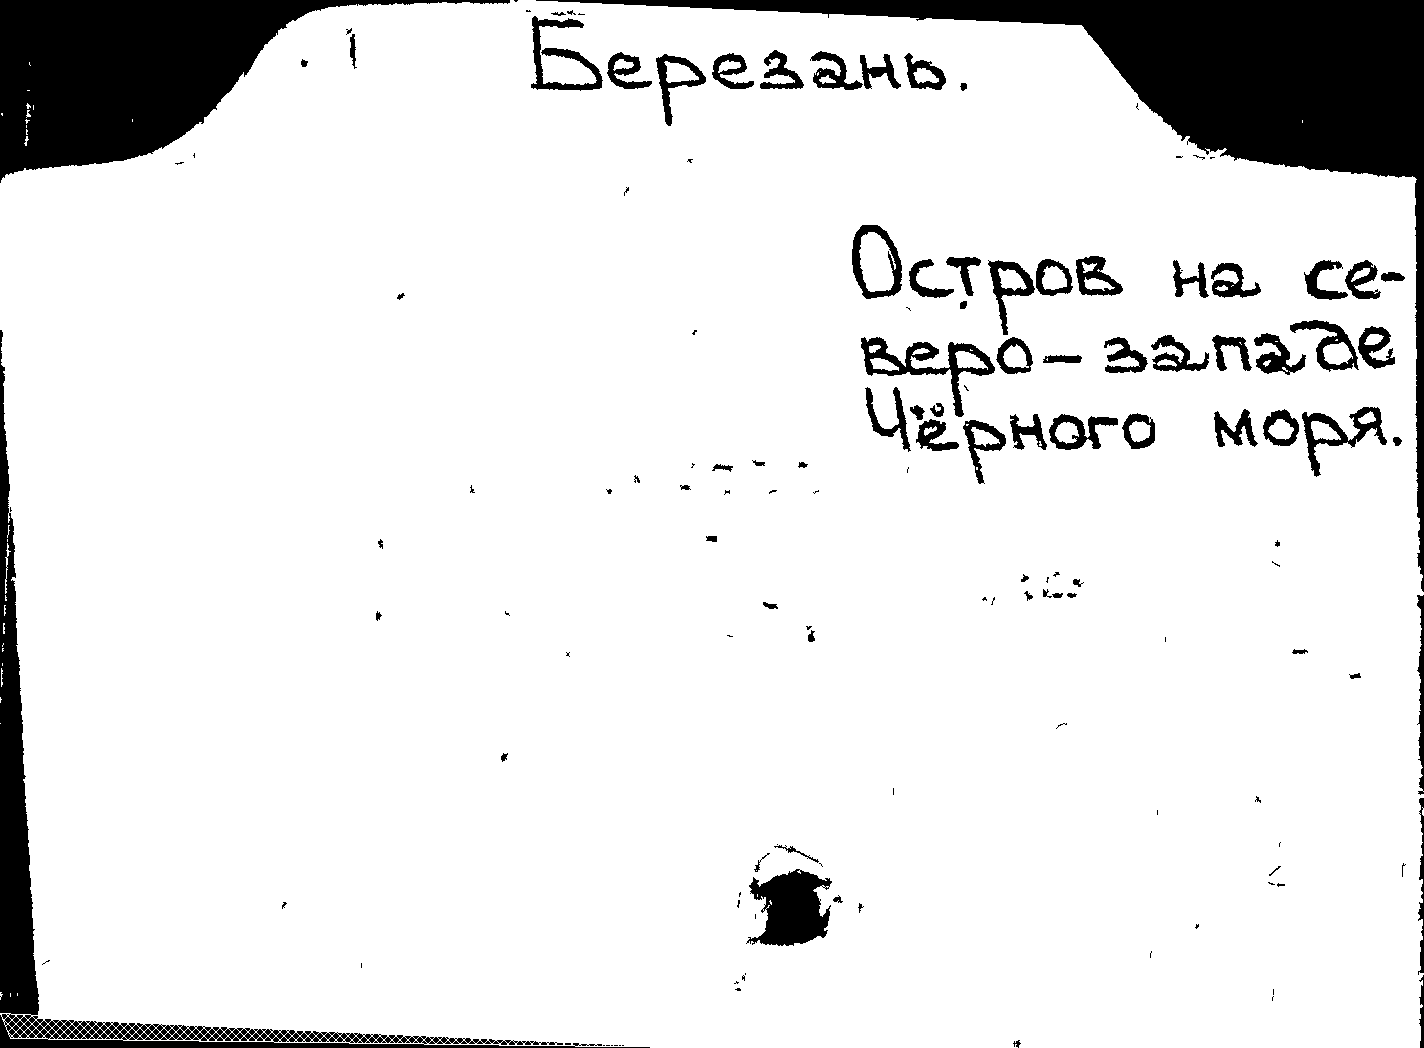 Березань.
Остров на се-
веро-западе
Чёрного моря.